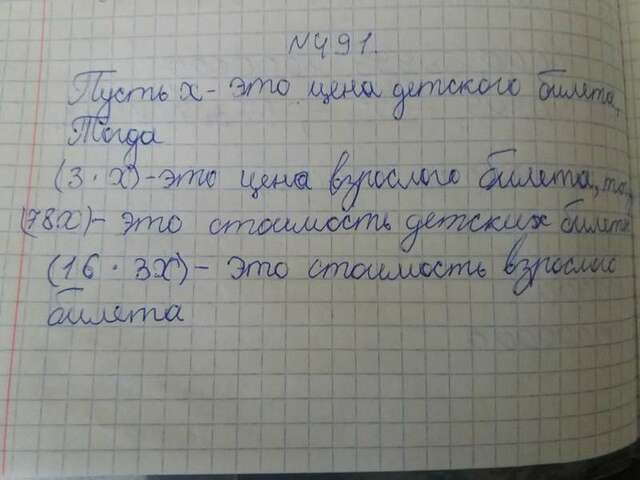 №491.
Пусть х - это цена детского билета,
Тогда
(3 · х) - это цена взрослого билета, то
(78х) - это стоимость детских билет
(16 · 3х) - это стоимость взрослых
билета